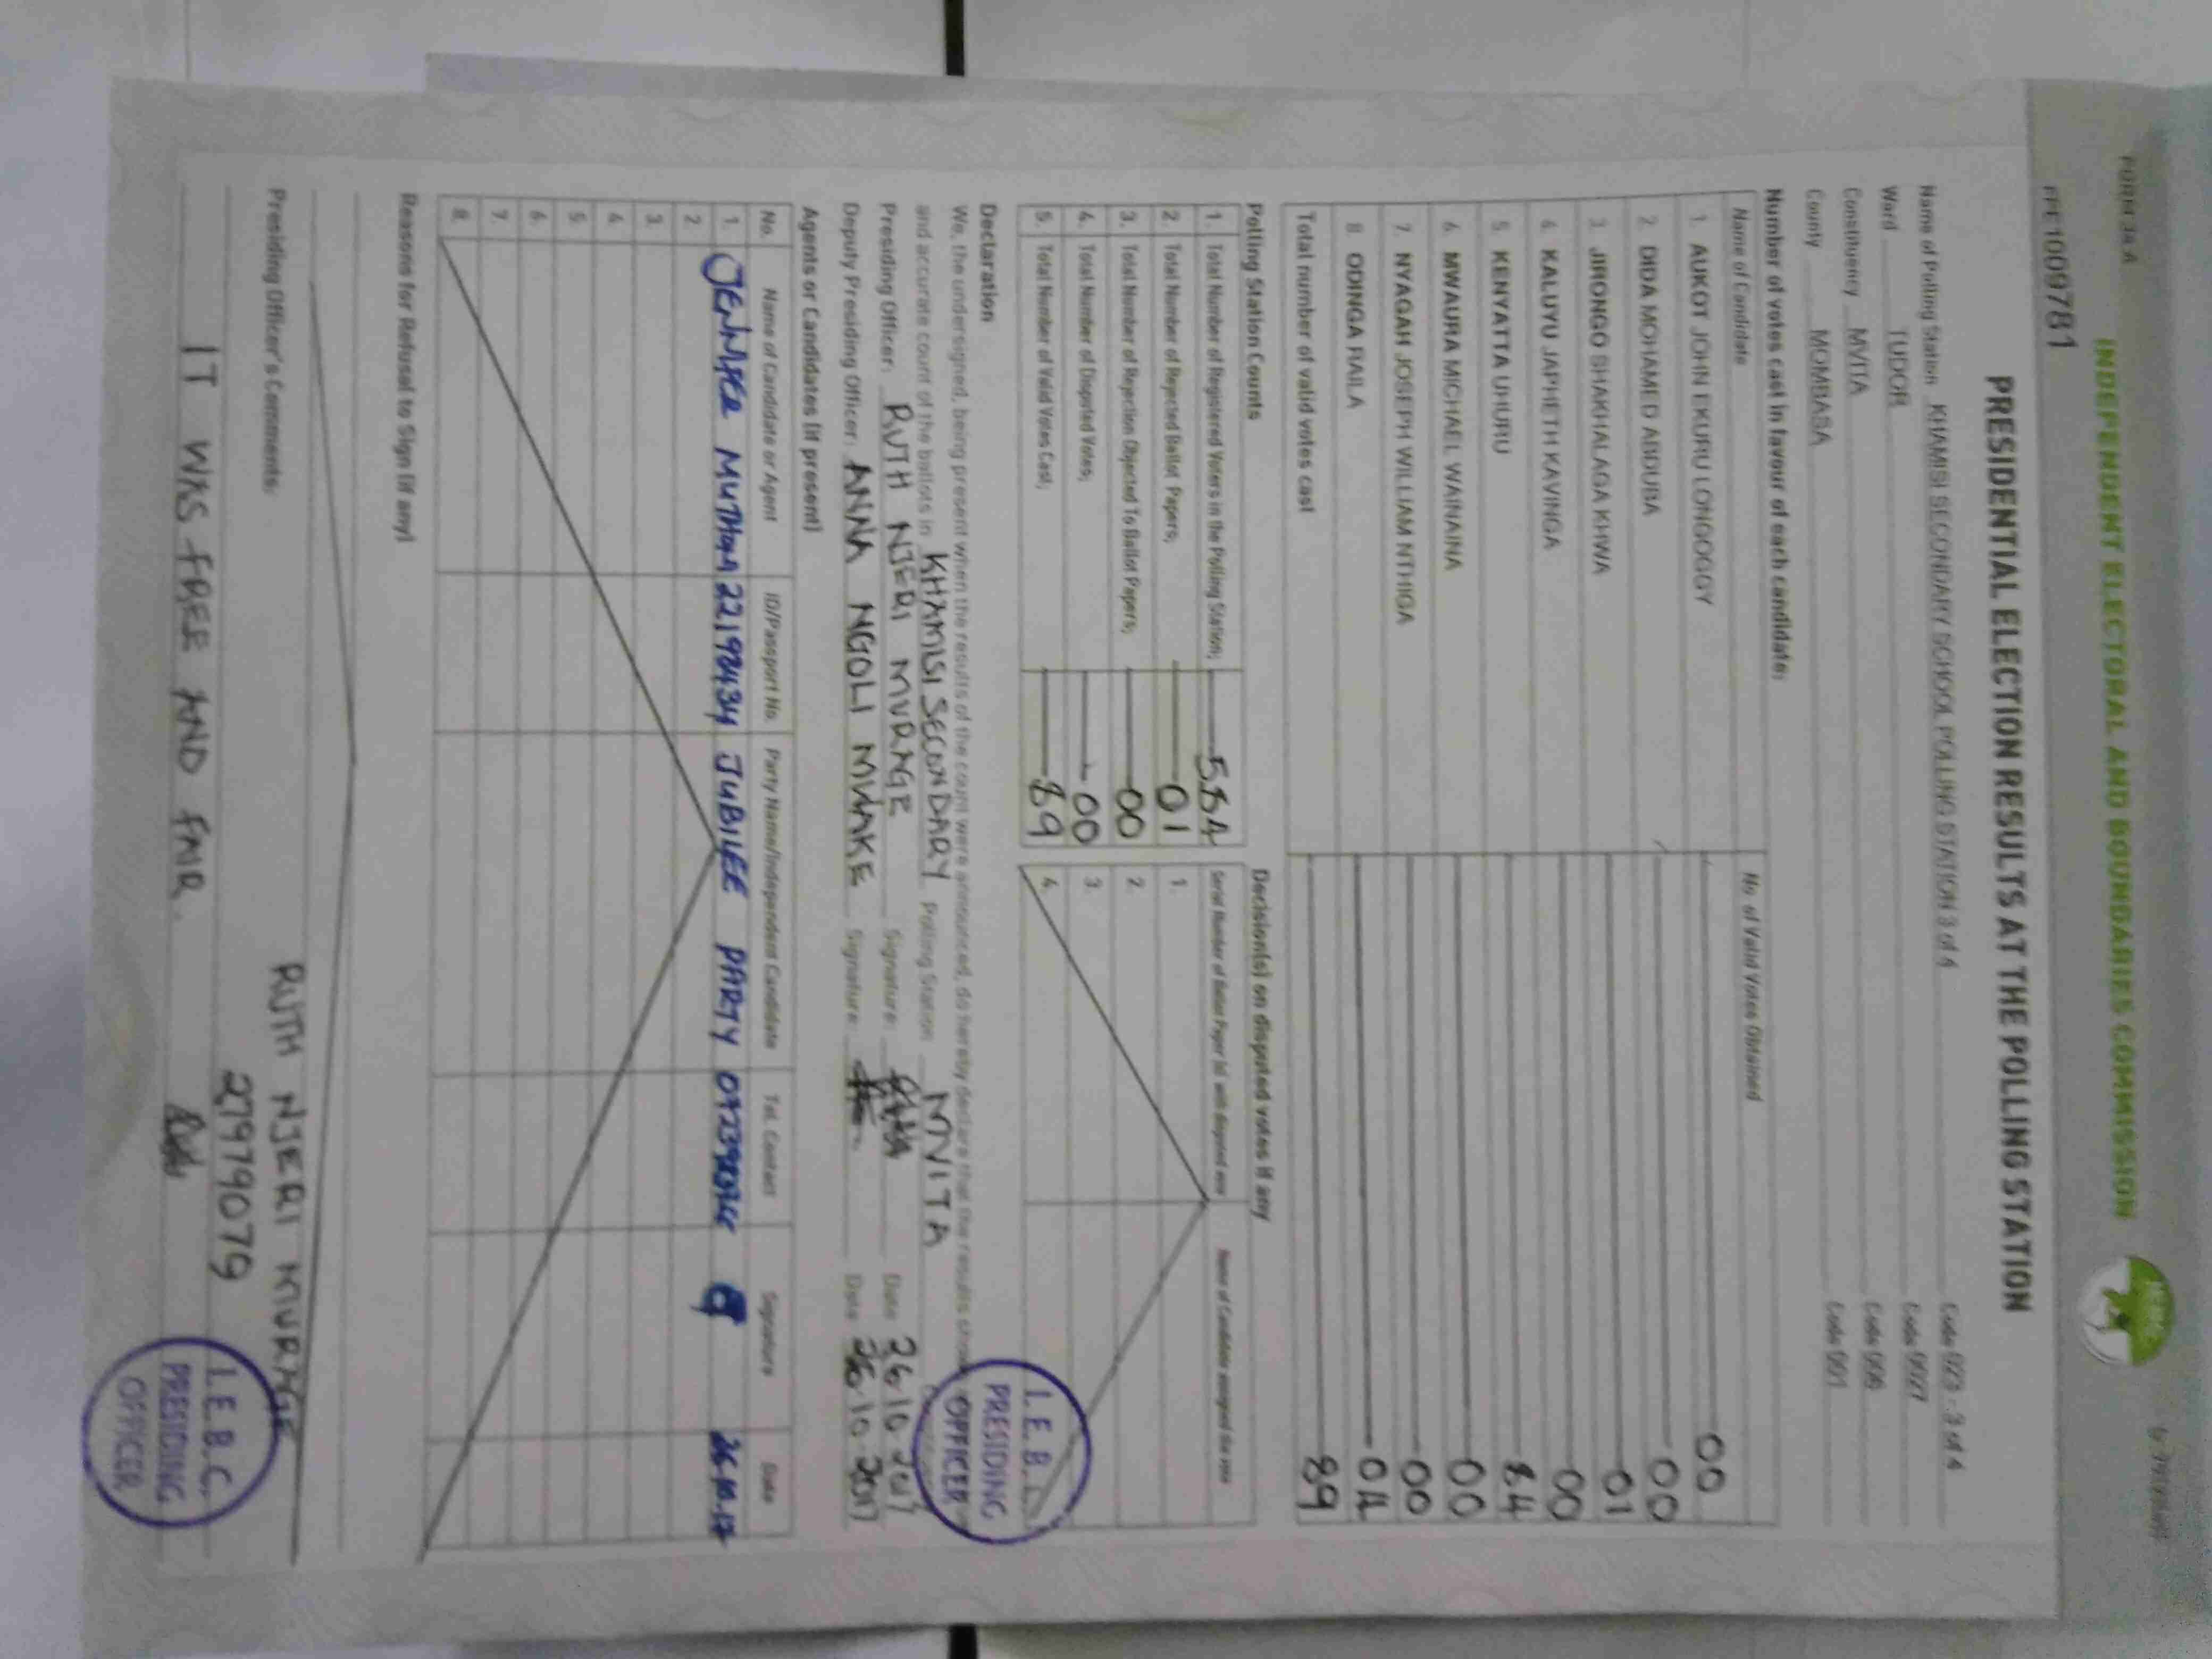 FORM 34 A
INDEPENDENT ELECTORAL AND BOUNDARIES COMMISSION
FPE1009781
PRESIDENTIAL ELECTION RESULTS AT THE POLLING STATION
Name of Polling Station KHAMISI SECONDARY SCHOOL POLLING STATION 3 of 4 Code 023 - 3 of 4
Ward TUDOR Code 0027
Constituency MVITA Code 006
County MOMBASA Code 001
Number of votes cast in favour of each candidate:
Name of Candidate No. of Valid Votes Obtained
1. AUKOT JOHN EKURU LONGOGGY 00
2. DIDA MOHAMED ABDUBA 00
3. JIRONGO SHAKHALAGA KHWA 01
4. KALUYU JAPHETH KAVINGA 00
5. KENYATTA UHURU 84
6. MWAURA MICHAEL WAINAINA 00
7. NYAGAH JOSEPH WILLIAM NTHIGA 00
8. ODINGA RAILA 04
Total number of valid votes cast 89
Polling Station Counts Decision(s) on disputed votes if any
1. Total Number of Registered Voters in the Polling Station; 584
2. Total Number of Rejected Ballot Papers; 01
3. Total Number of Rejection Objected To Ballot Papers; 00
4. Total Number of Disputed Votes; 00
5. Total Number of Valid Votes Cast; 89
Serial Number of Ballot Paper (s) with disputed vote Name of Candidate assigned the vote
1.
2.
3.
4.
Declaration
We, the undersigned, being present when the results of the count were announced, do hereby declare that the results shown
and accurate count of the ballots in KHAMISI SECONDARY Polling Station MVITA
Presiding Officer: RUTH NJERI MURAGE Signature: Date 26 10 2017
Deputy Presiding Officer: ANNA NGOLI MWAKE Signature: Date 26 10 2017
I.E.B.C.
PRESIDING
OFFICER
Agents or Candidates (if present)
No. Name of Candidate or Agent ID/Passport No. Party Name/Independent Candidate Tel. Contact Signature Date
1. JENNIFER MUTHONI 22198434 JUBILEE PARTY 26.10.17
2.
3.
4.
5.
6.
7.
8.
Reasons for Refusal to Sign (if any)
Presiding Officer's Comments:
RUTH NJERI MURAGE
27979079
IT WAS FREE AND FAIR.
I.E.B.C.
PRESIDING
OFFICER